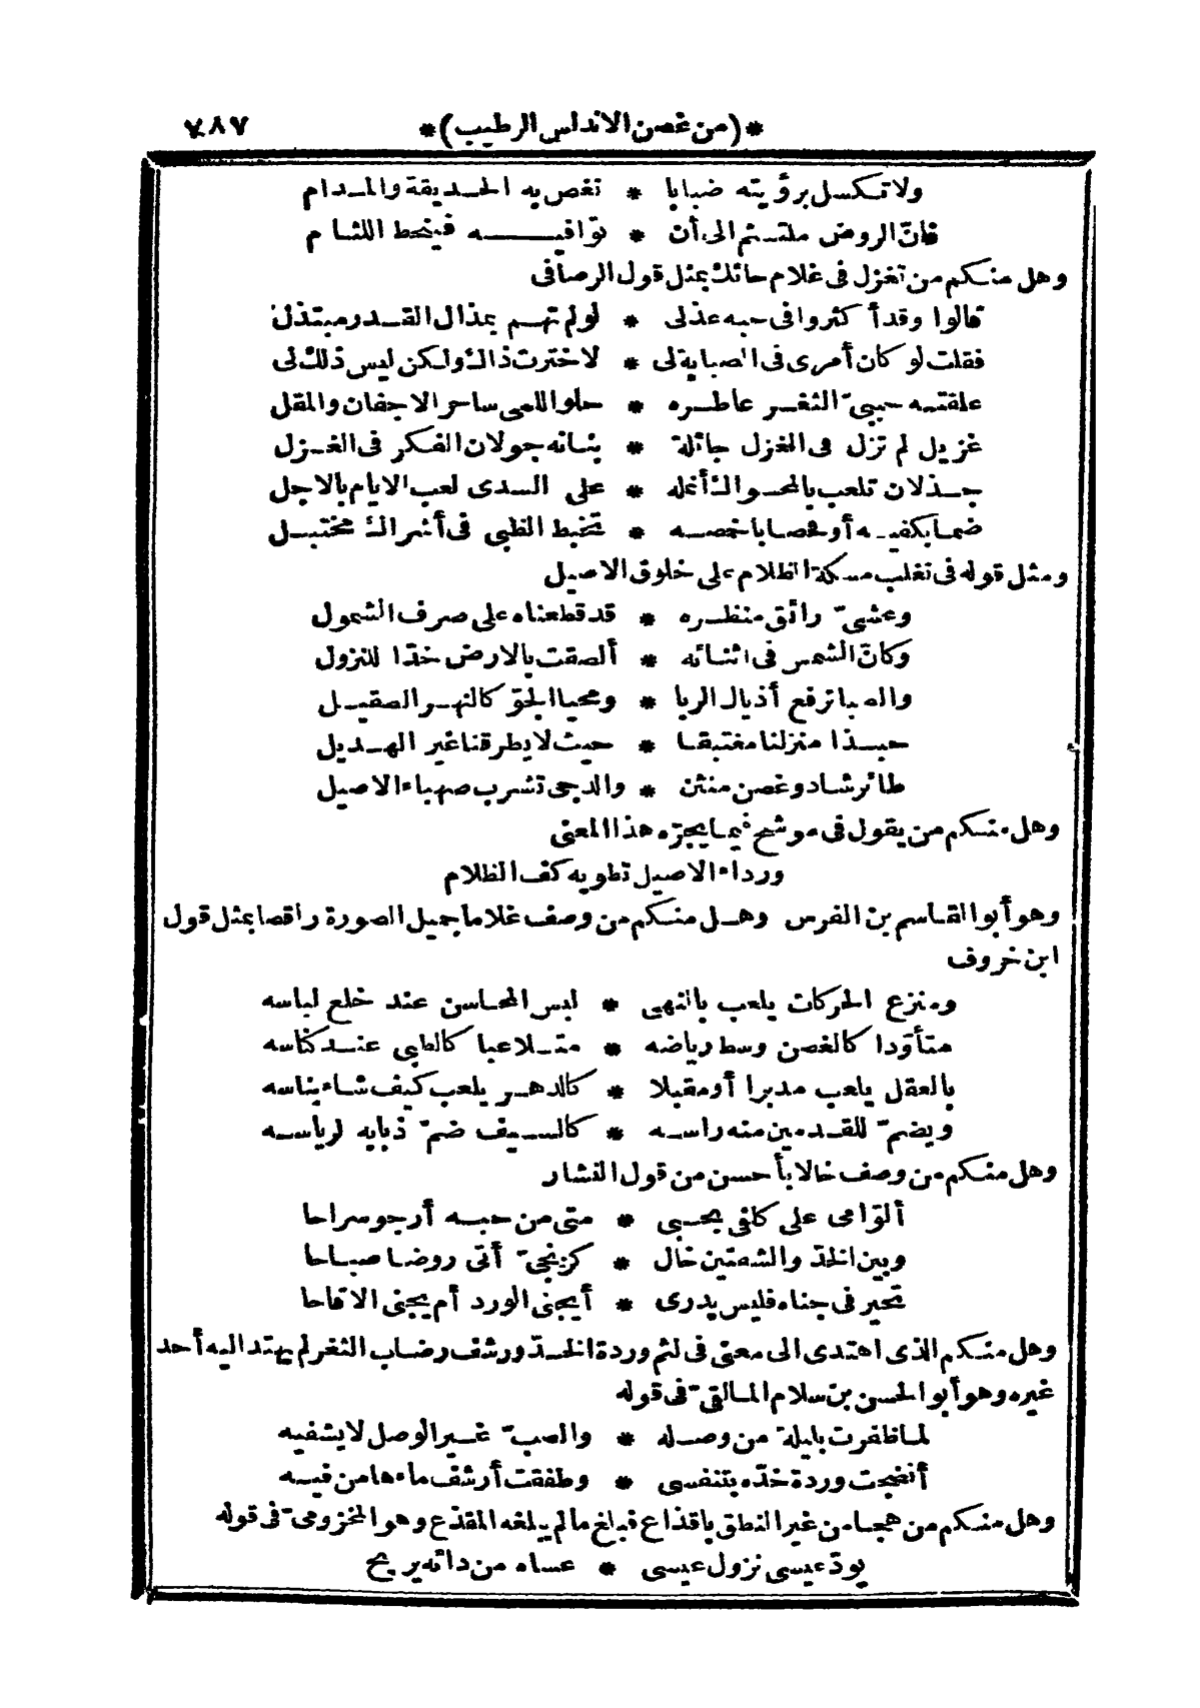 *(من غصن الاندلس الرطيب)* ٧٨٧
ولا تكسل برؤيته ضبابا * تغص به الحديقة والمدام
فانّ الروض ملتثم الى أن * توافيه فينحط اللثام
وهل منكم من تغزل فى غلام حائك بمثل قول الرصافى
قالوا وقد أكثروا فى حبه عذلى * لو لم تهم بمذال القدر مبتذل
فقلت لو كان أمرى فى الصبابة لى * لاخترت ذاك ولكن ليس ذلك لى
علقته حببىّ الثغر عاطره * حلو اللمى ساحر الاجفان والمقل
غزيل لم تزل فى الغزل جائلة * بنانه جولان الفكر فى الغزل
جذلان تلعب بالمحواك أنمله * على السدى لعب الايام بالاجل
ضما بكفيه أو فحصا باخمصه * تخبط الظبى فى أشراك مختبل
ومثل قوله فى تغلب مسكة الظلام على خلوق الاصيل
وعشىّ رائق منظره * قد قطعناه على صرف الشمول
وكانّ الشمس فى اثنائه * ألصقت بالارض خدّا للنزول
والصبا ترفع أذيال الربا * ومحيا الجوّ كالنهر الصقيل
حبذا منزلنا مغتبقا * حيث لا يطرقنا غير الهديل
طائر شاد وغصن منثن * والدجى تشرب صهباء الاصيل
وهل منكم من يقول فى موشح فيما يجرّه هذا المعنى
ورداء الاصيل تطويه كف الظلام
وهو أبو القاسم بن الفرس وهل منكم من وصف غلاما جميل الصورة راقصا بمثل قول
ابن خروف
ومنزع الحركات يلعب بالنهى * لبس المحاسن عند خلع لباسه
متأوّدا كالغصن وسط رياضه * متلاعبا كالظبى عند كناسه
بالعقل يلعب مدبرا أو مقبلا * كالدهر يلعب كيف شاء بناسه
ويضمّ للقدمين منه راسه * كالسيف ضمّ ذبابه لرياسه
وهل منكم من وصف خالا بأحسن من قول النشار
ألوّامى على كلفى بحيى * متى من حبه أرجو سراحا
وبين الخدّ والشفتين خال * كزنجىّ أتى روضا صباحا
تحير فى جناه فليس يدرى * أيجنى الورد أم يجنى الاقاحا
وهل منكم الذى اهتدى الى معنى فى لثم وردة الخدّ ورشف رضاب الثغر لم يهتد اليه أحد
غيره وهو أبو الحسن بن سلام المالقىّ فى قوله
لما ظفرت بليلة من وصله * والصبّ غير الوصل لا يشفيه
أنضجت وردة خدّه بتنفسى * وطفقت أرشف ماءها من فيه
وهل منكم من هجا من غير النطق باقذاع فبلغ ما لم يبلغه المقذع وهو المخزومىّ فى قوله
يودّ عيسى نزول عيسى * عساه من دائه يريح